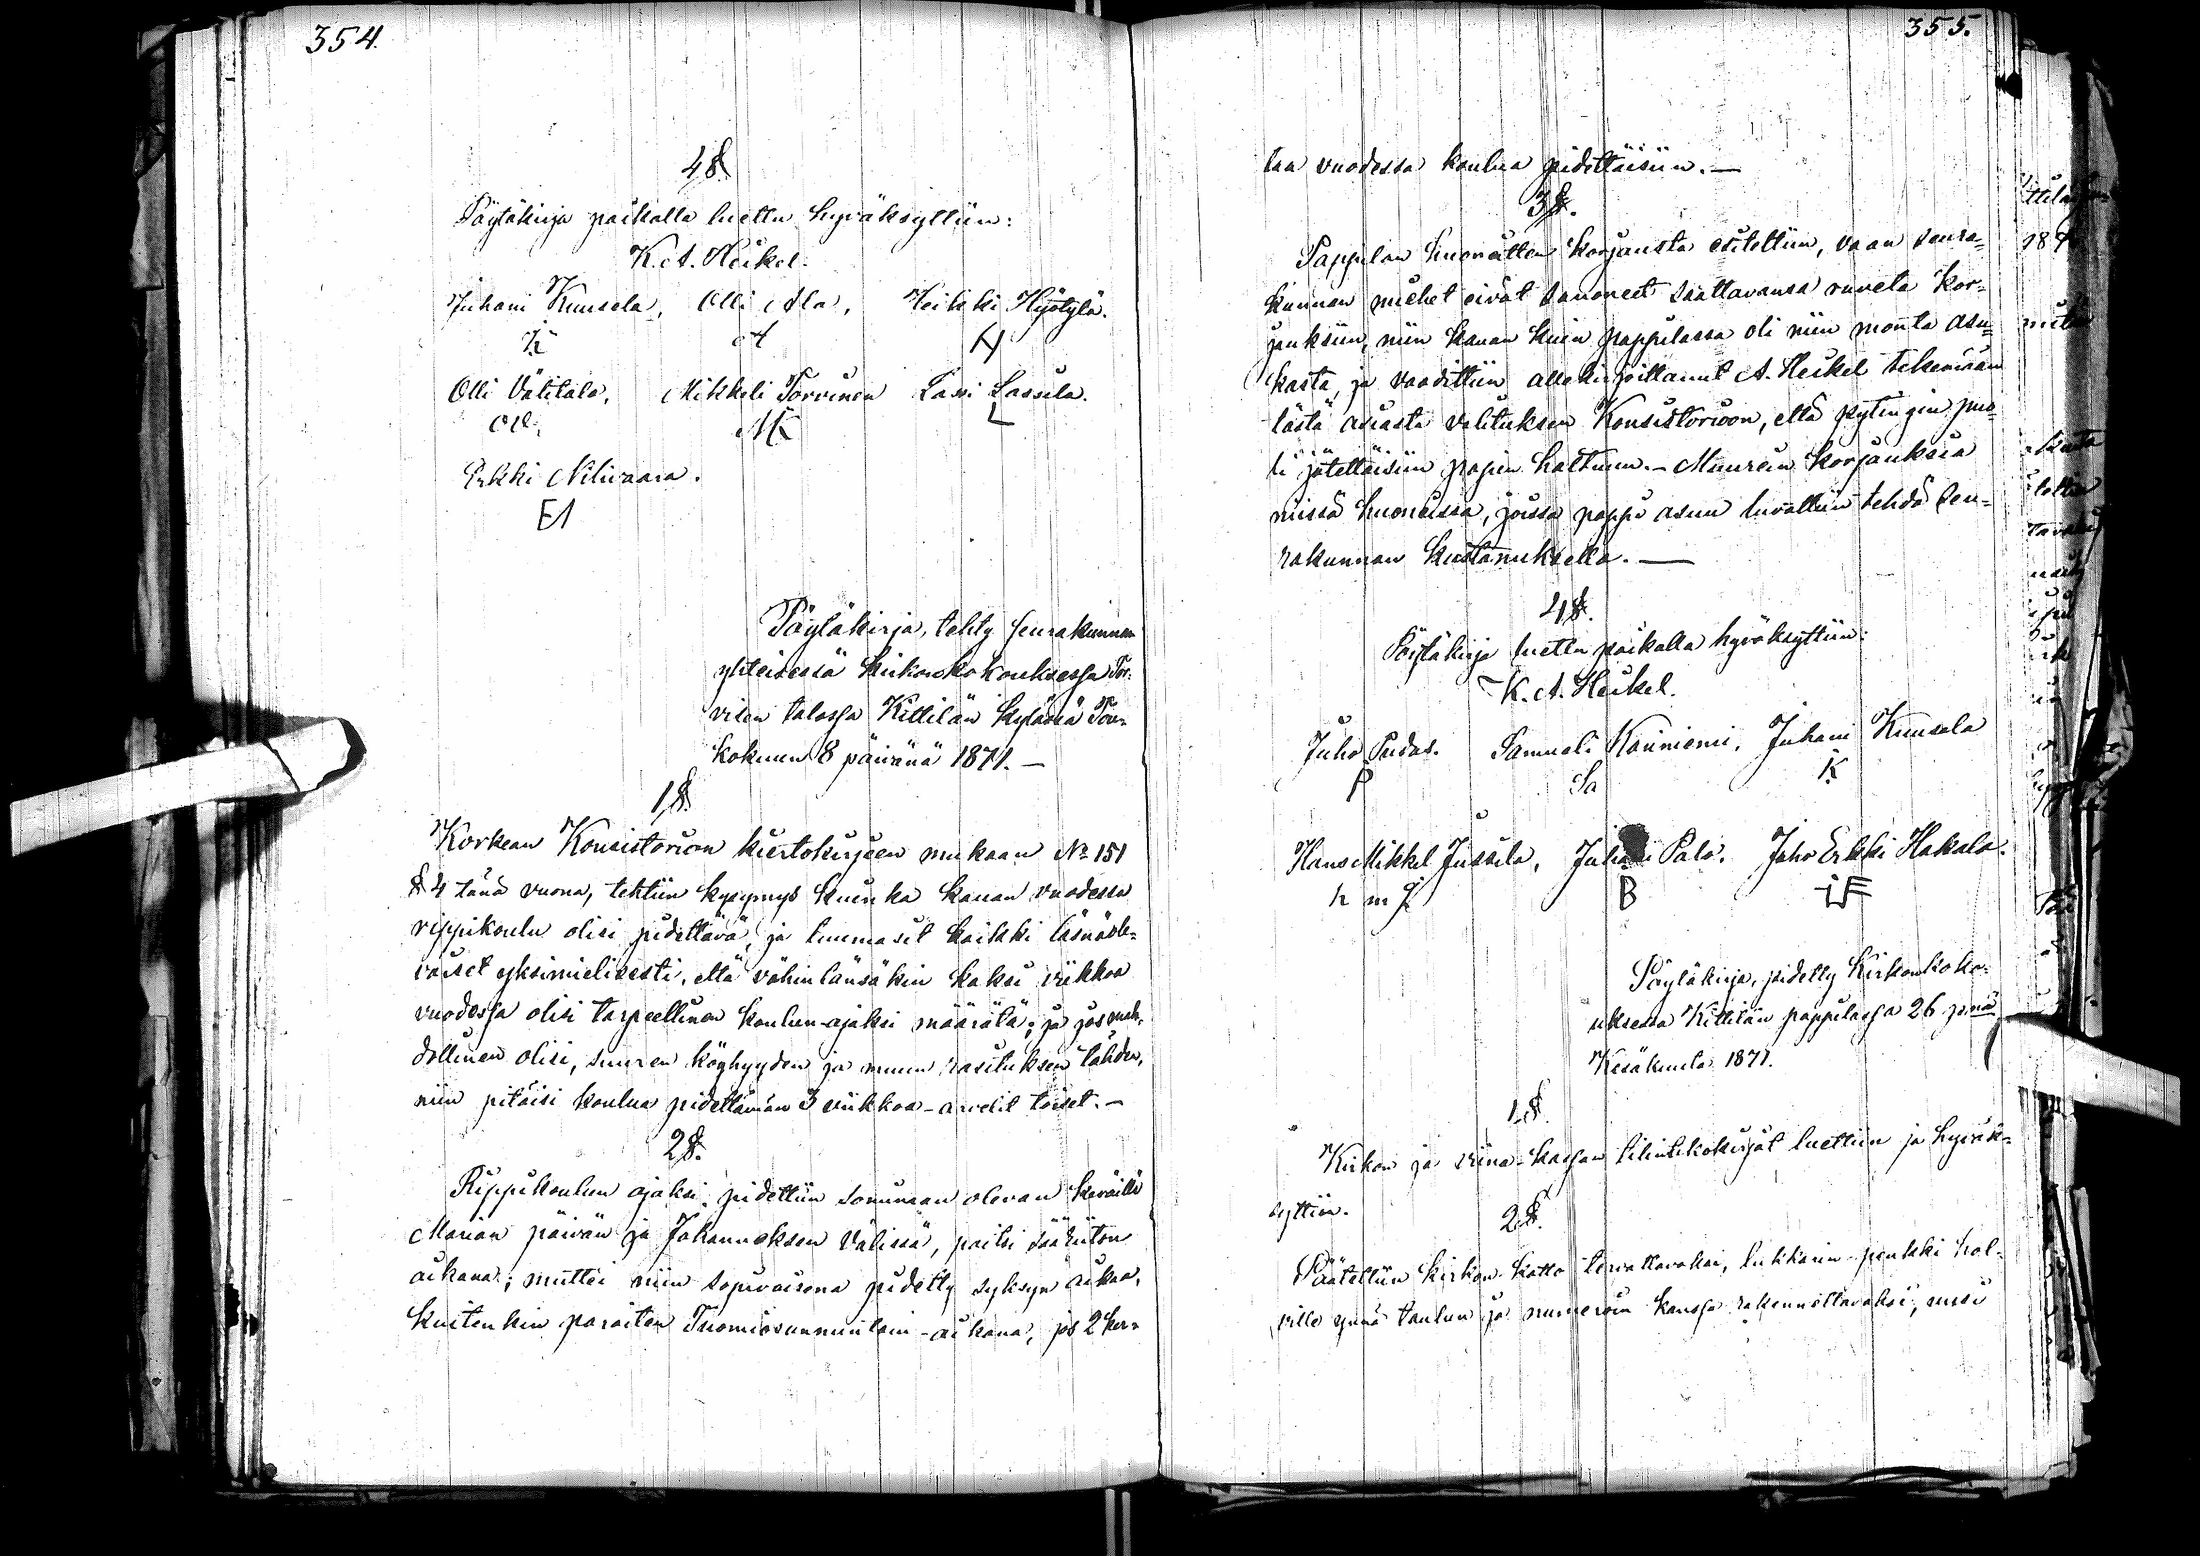 354.
4 §.
Pöytäkirja paikalla luettu hyväksyttiin:
K. A. Heikel.
Juhani Kuusela, Olli Ala, Heikki Hyötylä.
K A H
Olli Välitalo, Mikkeli Torvinen Lassi Lassila.
OW. MK L
Erkki Nilivaara.
EN
Pöytäkirja, tehty seurakunnan
yhteisessä kirkonkokouksessa Tor-
visen talossa Kittilän kylässä Tou-
kokuun 8 päivänä 1871. —
1 §.
Korkean Konsistorion kiertokirjeen mukaan № 151
§ 4 tänä vuona, tehtiin kysymys kuinka kauan vuodessa
rippikoulu olisi pidettävä, ja tuumasit kaikki läsnäole-
vaiset yksimielisesti, että vähinlänsäkin kaksi viikkoa
vuodessa olisi tarpeellinen koulun-ajaksi määrätä; ja jos mah-
dollinen olisi, suuren köyhyyden ja muun rasituksen tähden,
niin pitäisi koulua pidettämän 3 viikkoa - arvelit toiset. —
2 §.
Rippikoulun ajaksi pidettiin somimaan olevan keväillä
Marian päivän ja Johanneksen välissä, paitsi sääkiiton
aikana; muttei niin sopivaisena pidetty syksyn aikaa,
kuitenkin paraiten Tuomiosunnuntain-aikana, jos 2 ker-
355.
taa vuodessa koulua pidettäisiin. —
3 §.
Pappilan huonetten korjausta esiteltiin, vaan seura-
kunnan miehet eivät sanoneet saattavansa ruveta kor-
jauksiin, niin kauan kuin pappilassa oli niin monta asu-
kasta, ja vaadittiin allekirjoittanut A. Heikel tekemään
tästä asiasta valituksen Konsistorioon, että pytingin puo-
li jätettäisiin papin haltuun. — Muurein korjauksia
niissä huoneissa, joissa pappi asuu luvattiin tehdä seu-
rakunnan kustannuksella. —
4 §.
Pöytäkirja luettu paikalla hyväksyttiin:
K. A. Heikel.
Juho Pudas. Samueli Kauniemi, Juhani Kuusela
P Sa K
Hans Mikkel Jussila, Juhani Palo. Joho Erkki Hakala.
h m J B iE
Pöytäkirja, pidetty Kirkonkoko-
uksessa Kittilän pappilassa 26 p:nä
Kesäkuuta 1871.
1 §.
Kirkon ja viina-kassan tilintekokirjat luettiin ja hyväk-
syttiin.
2 §.
Päätettiin kirkon katto tervattavaksi, lukkarin-penkki hal-
ville ynnä taulun ja numeroin kanssa rakennettavaksi, uusi